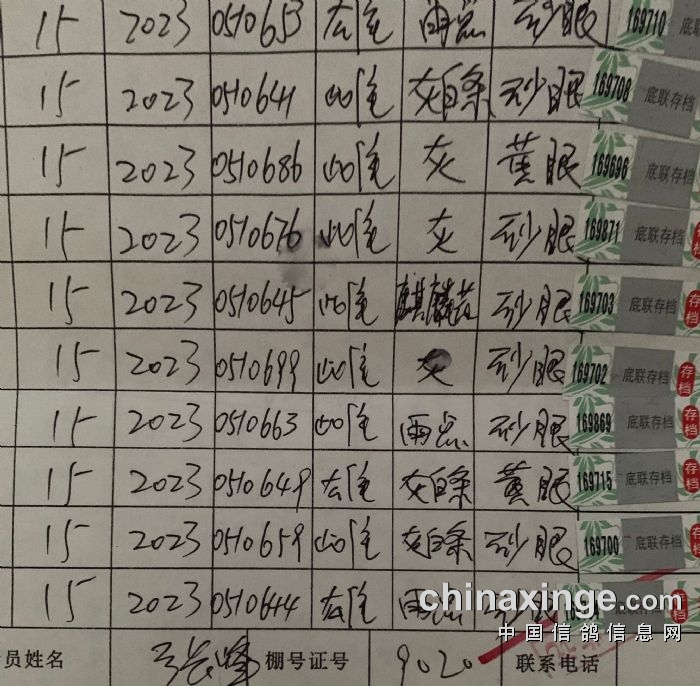 15 2023 0510653 雄 雨点 砂眼 169710 底联
15 2023 0510641 雌 灰白条 砂眼 169708 底联存档
15 2023 0510686 雌 灰 黄眼 169696 底联存档
15 2023 0510676 雌 灰 砂眼 169871 底联存档 存档
15 2023 0510645 雌 麒麟花 砂眼 169703 底联存档 存档
15 2023 0510699 雌 灰 砂眼 169702 底联存档 存档
15 2023 0510663 雌 雨点 砂眼 169869 底联存档 存档
15 2023 0510649 雄 灰白条 黄眼 169715 底联存档 存档
15 2023 0510659 雌 灰白条 砂眼 169700 底联存档 存档
15 2023 0510644 雄 雨点
chinaxinge.com
中国信鸽信息网
员姓名 棚号证号 9020 联系电话